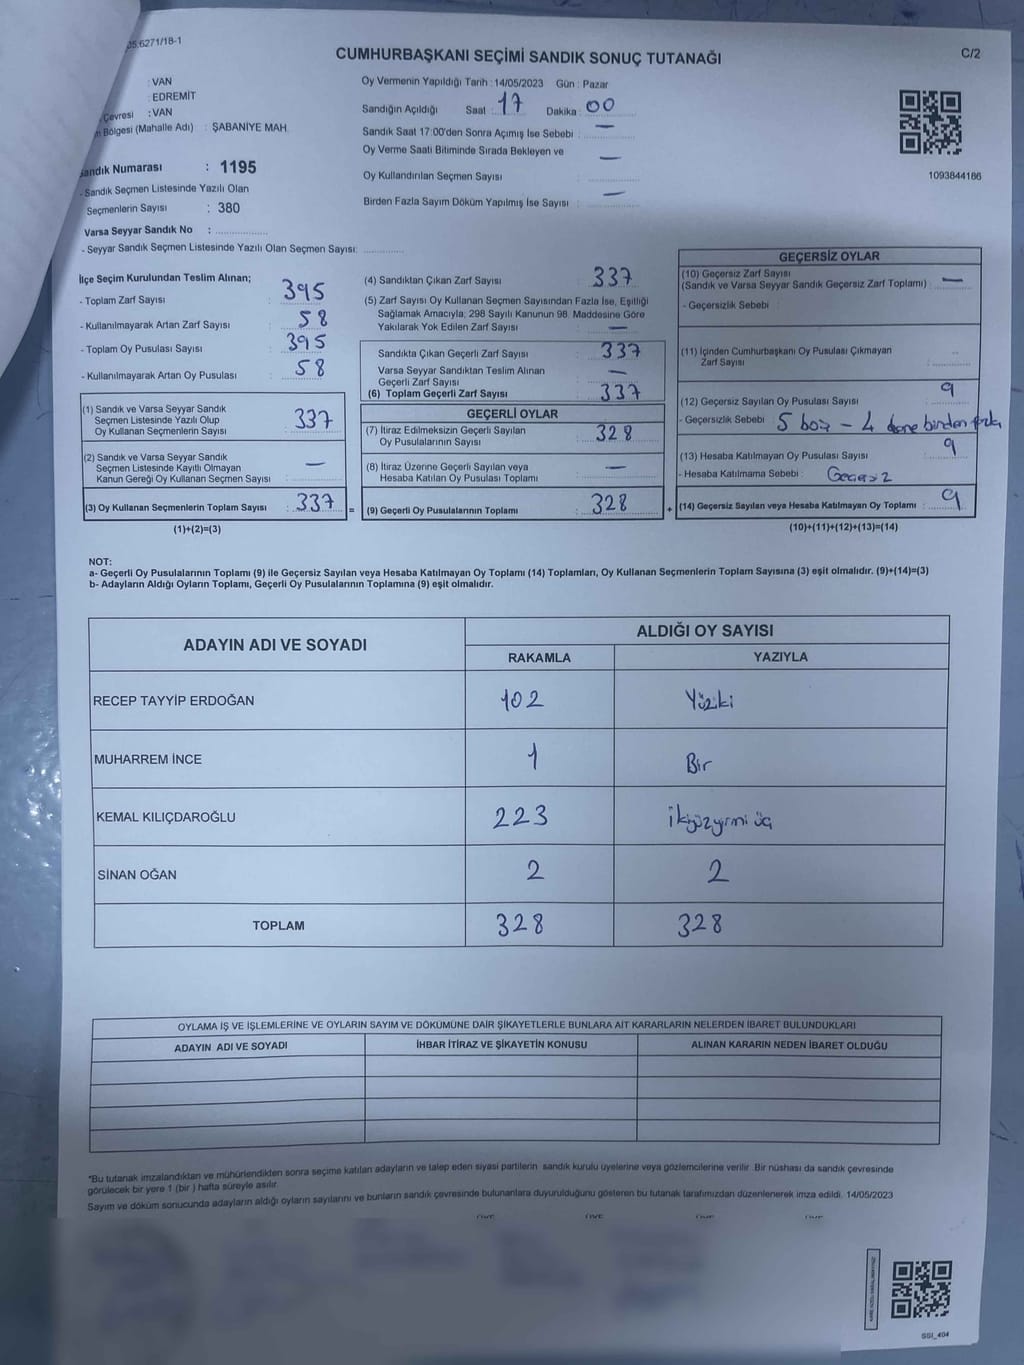 CUMHURBAŞKANI SEÇİMİ SANDIK SONUÇ TUTANAĞI
C/2
: VAN
: EDREMİT
Çevresi : VAN
Bölgesi (Mahalle Adı) : ŞABANİYE MAH.
Sandık Numarası : 1195
- Sandık Seçmen Listesinde Yazılı Olan
Seçmenlerin Sayısı : 380
Varsa Seyyar Sandık No :
- Seyyar Sandık Seçmen Listesinde Yazılı Olan Seçmen Sayısı:
Oy Vermenin Yapıldığı Tarih : 14/05/2023 Gün : Pazar
Sandığın Açıldığı Saat : 17 Dakika : 00
Sandık Saat 17:00'den Sonra Açımış İse Sebebi : —
Oy Verme Saati Bitiminde Sırada Bekleyen ve —
Oy Kullandırılan Seçmen Sayısı :
Birden Fazla Sayım Döküm Yapılmış İse Sayısı : —
1093844186
İlçe Seçim Kurulundan Teslim Alınan;
- Toplam Zarf Sayısı : 395
- Kullanılmayarak Artan Zarf Sayısı : 58
- Toplam Oy Pusulası Sayısı : 395
- Kullanılmayarak Artan Oy Pusulası : 58
(1) Sandık ve Varsa Seyyar Sandık
Seçmen Listesinde Yazılı Olup
Oy Kullanan Seçmenlerin Sayısı : 337
(2) Sandık ve Varsa Seyyar Sandık
Seçmen Listesinde Kayıtlı Olmayan
Kanun Gereği Oy Kullanan Seçmen Sayısı : —
(3) Oy Kullanan Seçmenlerin Toplam Sayısı : 337 =
(1)+(2)=(3)
(4) Sandıktan Çıkan Zarf Sayısı : 337
(5) Zarf Sayısı Oy Kullanan Seçmen Sayısından Fazla İse, Eşitliği
Sağlamak Amacıyla; 298 Sayılı Kanunun 98. Maddesine Göre
Yakılarak Yok Edilen Zarf Sayısı : —
Sandıkta Çıkan Geçerli Zarf Sayısı : 337
Varsa Seyyar Sandıktan Teslim Alınan
Geçerli Zarf Sayısı : —
(6) Toplam Geçerli Zarf Sayısı : 337
GEÇERLİ OYLAR
(7) İtiraz Edilmeksizin Geçerli Sayılan
Oy Pusulalarının Sayısı : 328
(8) İtiraz Üzerine Geçerli Sayılan veya
Hesaba Katılan Oy Pusulası Toplamı : —
(9) Geçerli Oy Pusulalarının Toplamı : 328 +
GEÇERSİZ OYLAR
(10) Geçersiz Zarf Sayısı
(Sandık ve Varsa Seyyar Sandık Geçersiz Zarf Toplamı) : —
- Geçersizlik Sebebi :
(11) İçinden Cumhurbaşkanı Oy Pusulası Çıkmayan
Zarf Sayısı :
(12) Geçersiz Sayılan Oy Pusulası Sayısı : 9
- Geçersizlik Sebebi : 5 boş - 4 dane birden fazla
(13) Hesaba Katılmayan Oy Pusulası Sayısı : 9
- Hesaba Katılmama Sebebi : Geçersiz
(14) Geçersiz Sayılan veya Hesaba Katılmayan Oy Toplamı : 9
(10)+(11)+(12)+(13)=(14)
NOT:
a- Geçerli Oy Pusulalarının Toplamı (9) ile Geçersiz Sayılan veya Hesaba Katılmayan Oy Toplamı (14) Toplamları, Oy Kullanan Seçmenlerin Toplam Sayısına (3) eşit olmalıdır. (9)+(14)=(3)
b- Adayların Aldığı Oyların Toplamı, Geçerli Oy Pusulalarının Toplamına (9) eşit olmalıdır.
ADAYIN ADI VE SOYADI
ALDIĞI OY SAYISI
RAKAMLA YAZIYLA
RECEP TAYYİP ERDOĞAN 102 Yüziki
MUHARREM İNCE 1 Bir
KEMAL KILIÇDAROĞLU 223 ikiyüzyirmi üç
SİNAN OĞAN 2 2
TOPLAM 328 328
OYLAMA İŞ VE İŞLEMLERİNE VE OYLARIN SAYIM VE DÖKÜMÜNE DAİR ŞİKAYETLERLE BUNLARA AİT KARARLARIN NELERDEN İBARET BULUNDUKLARI
ADAYIN ADI VE SOYADI İHBAR İTİRAZ VE ŞİKAYETİN KONUSU ALINAN KARARIN NEDEN İBARET OLDUĞU
*Bu tutanak imzalandıktan ve mühürlendikten sonra seçime katılan adayların ve talep eden siyasi partilerin sandık kurulu üyelerine veya gözlemcilerine verilir. Bir nüshası da sandık çevresinde
görülecek bir yere 1 (bir ) hafta süreyle asılır.
Sayım ve döküm sonucunda adayların aldığı oyların sayılarını ve bunların sandık çevresinde bulunanlara duyurulduğunu gösteren bu tutanak tarafımızdan düzenlenerek imza edildi. 14/05/2023